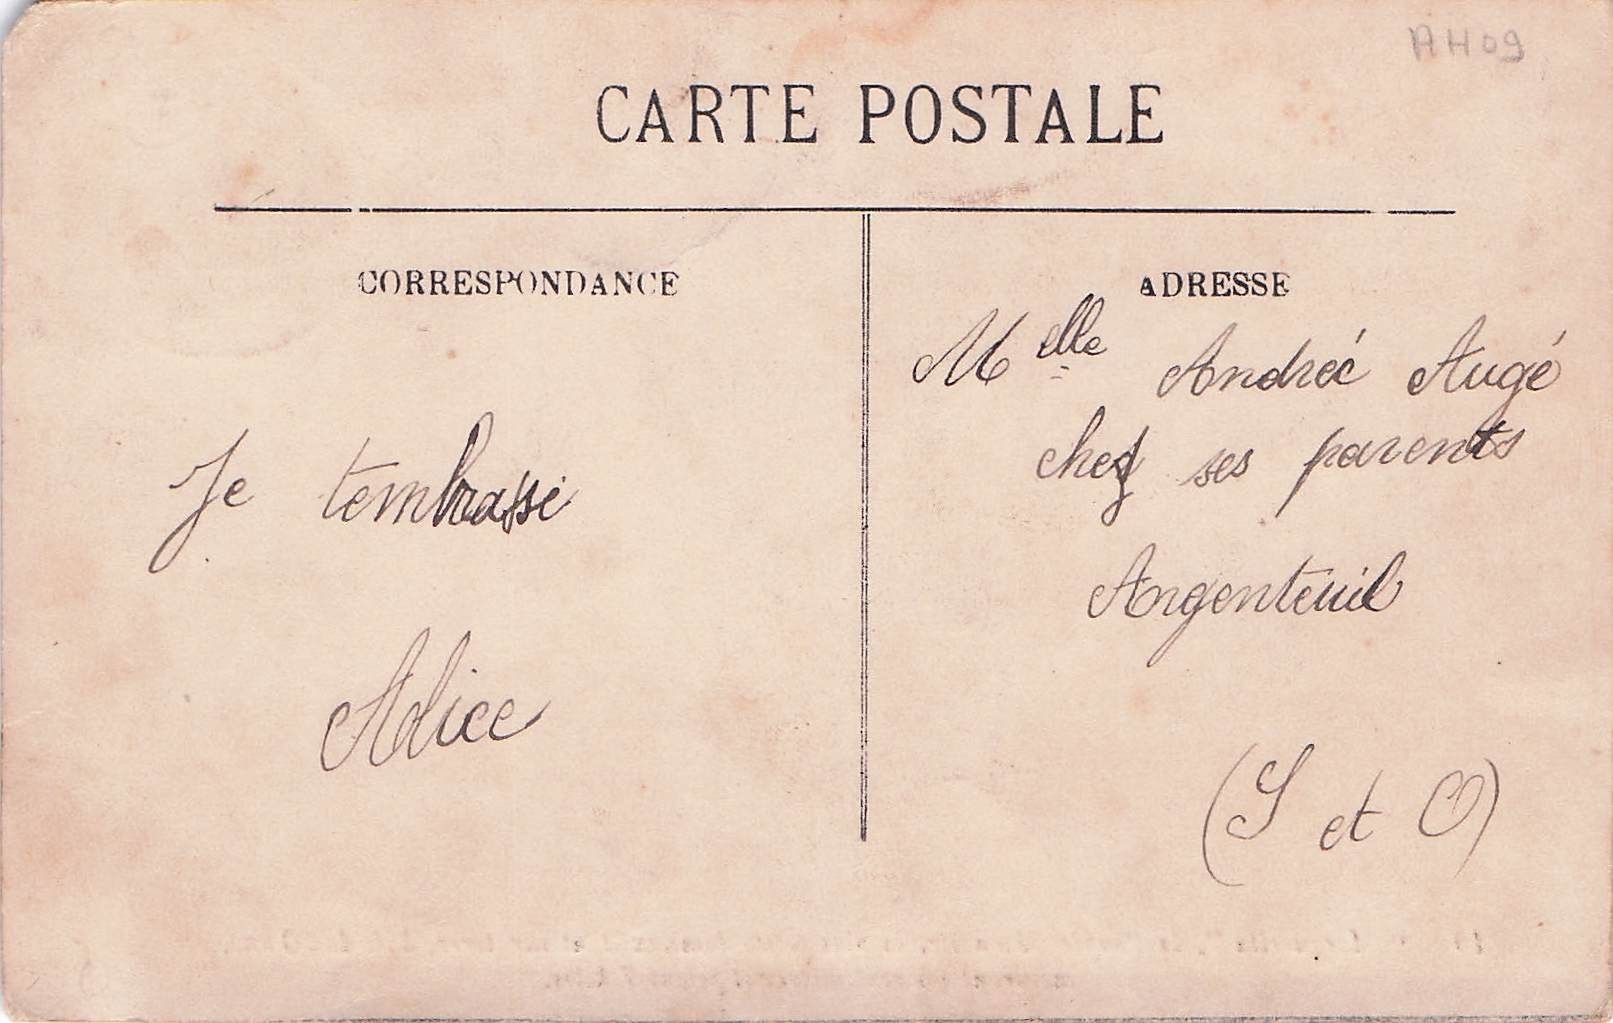 AH09
CARTE POSTALE
CORRESPONDANCE
Je t'embrasse
Alice
ADRESSE
Melle Andrée Augé
chez ses parents
Argenteuil
(S et O)